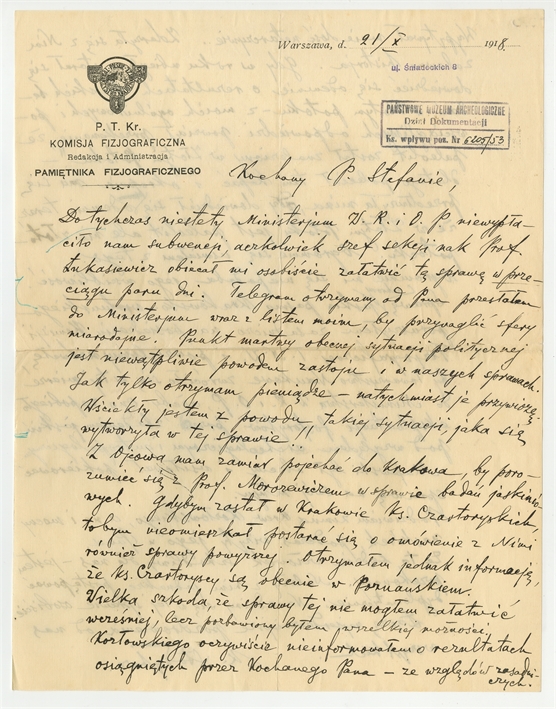 Warszawa, d. 21/X 1918.
ul. Śniadeckich 8
PAŃSTWOWE MUZEUM ARCHEOLOGICZNE
Dział Dokumentacji
Kr. wpływu poz. Nr 6205/53
P. T. Kr.
KOMISJA FIZJOGRAFICZNA
Redakcja i Administracja
PAMIĘTNIKA FIZJOGRAFICZNEGO
Kochany P. Stefanie,
Dotychczas niestety Ministerjum W. R. i O. P. niewypła-
ciło nam subwencji, aczkolwiek szef sekcji nauk Prof.
Łukasiewicz obiecał mi osobiście załatwić tą sprawę w prze-
ciągu paru dni. Telegram otrzymany od Pana przesłałem
do Ministerjum wraz z listem moim, by przynaglić sfery
miarodajne. Punkt martwy obecnej sytuacji politycznej
jest niewątpliwie powodem zastoju i w naszych sprawach.
Jak tylko otrzymam pieniądze – natychmiast je przywiozę.
Wściekły jestem z powodu takiej sytuacji, jaka się
wytworzyła w tej sprawie!!
Z Ojcowa mam zamiar pojechać do Krakowa, by poro-
zumieć się z Prof. Morozewiczem w sprawie badań jaskinio-
wych. Gdybym zastał w Krakowie Ks. Czartoryskich,
tobym nieomieszkał postarać się o omówienie z Nimi
również sprawy powyższej. Otrzymałem jednak informację,
że Ks. Czartoryscy są obecnie w Poznańskiem.
Wielka szkoda, że sprawy tej nie mogłem załatwić
wcześniej, lecz pozbawiony byłem wszelkiej możności.
Kozłowskiego oczywiście nieinformowałem o rezultatach
osiągniętych przez Kochanego Pana – ze względów zasadni-
czych.